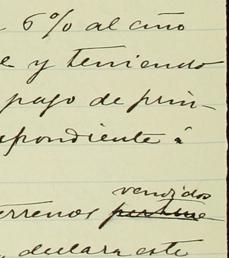 6% al año
e y teniendo
pago de prin-
spondiente á
vendidos
terrenos
declara este